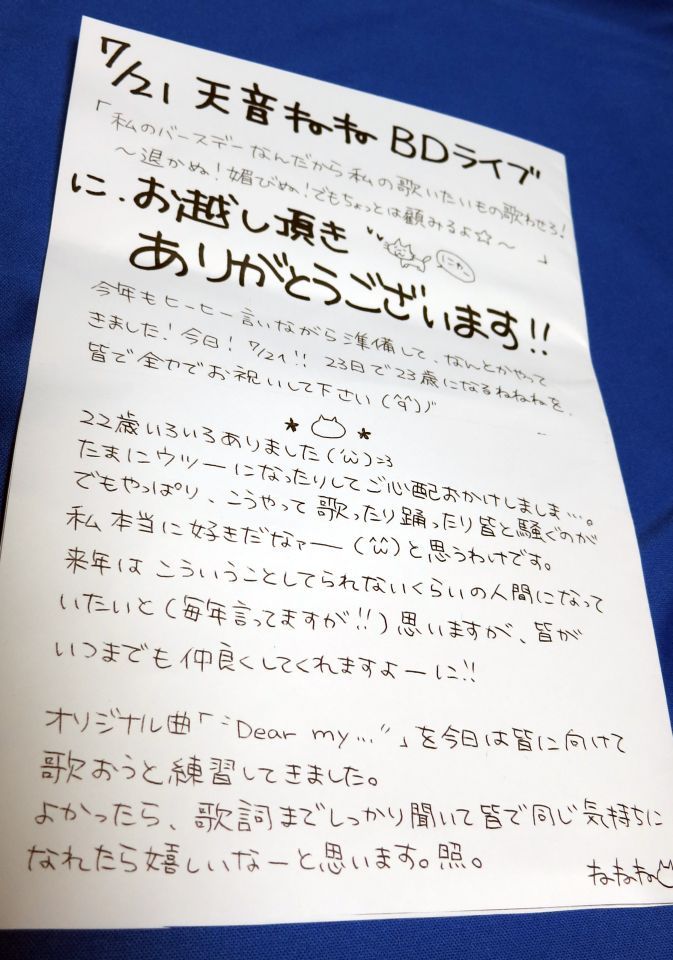 7/21 天音ねね BDライブ
「私のバースデーなんだから私の歌いたいもの歌わせろ!
～退かぬ!媚びぬ!でもちょっとは顧みるよ☆～」
に、お越し頂き
にゃー
ありがとうございます!!
今年もヒーヒー言いながら準備して、なんとかやって
きました!今日!7/21!!23日で23歳になるねねねを、
皆で全力でお祝いして下さい
22歳いろいろありました(´ω`)=3
たまにウツーになったりしてご心配おかけしましま…。
でもやっぱり、こうやって歌ったり踊ったり皆と騒ぐのが
私本当に好きだなァー(^ω^)と思うわけです。
来年はこういうことしてられないくらいの人間になって
いたいと(毎年言ってますが!!)思いますが、皆が
いつまでも仲良くしてくれますよーに!!
オリジナル曲「"Dear my…"」を今日は皆に向けて
歌おうと練習してきました。
よかったら、歌詞までしっかり聞いて皆で同じ気持ちに
なれたら嬉しいなーと思います。照。
ねねね